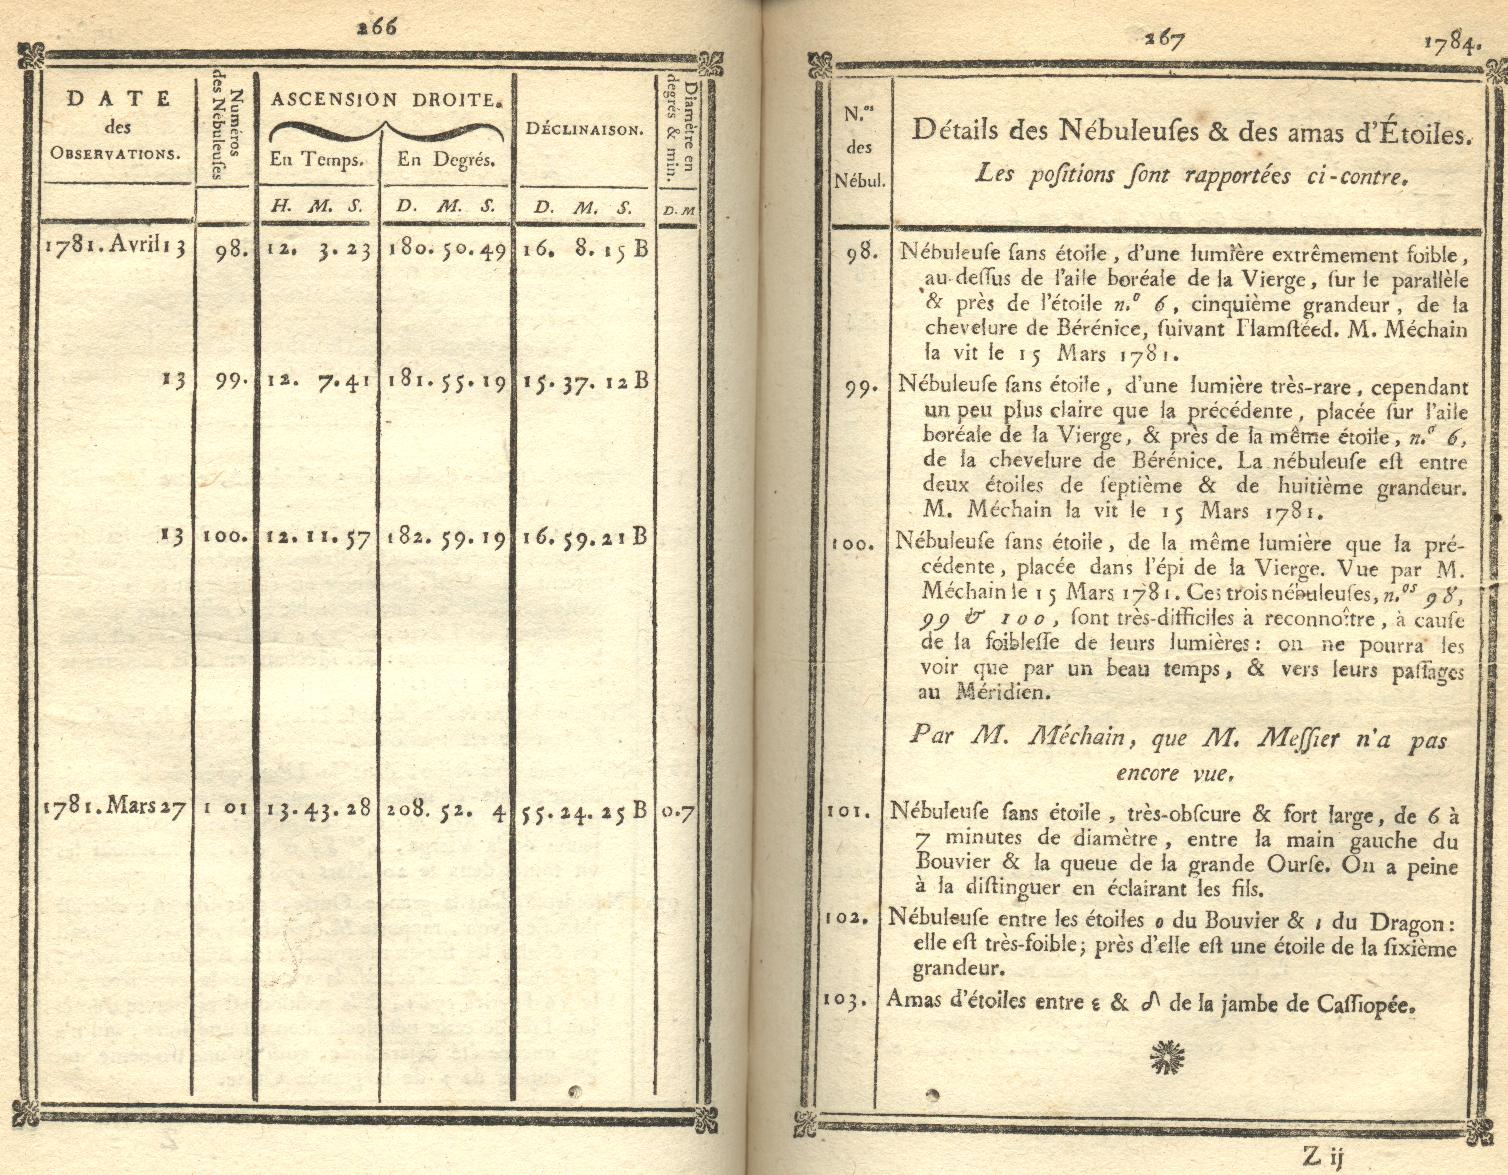 266
DATE
des
OBSERVATIONS.
Numéros
des Nébuleuſes
ASCENSION DROITE.
En Temps. En Degrés.
DÉCLINAISON.
Diamètre en
degrés & min.
H. M. S. D. M. S. D. M. S. D. M
1781. Avril 13 98. 12. 3. 23 180. 50. 49 16. 8. 15 B
13 99. 12. 7. 41 181. 55. 19 15. 37. 12 B
13 100. 12. 11. 57 182. 59. 19 16. 59. 21 B
1781. Mars 27 1 01 13. 43. 28 208. 52. 4 55. 24. 25 B 0. 7
267 1784.
N.os
des
Nébul.
Détails des Nébuleuſes & des amas d'Étoiles.
Les poſitions ſont rapportées ci-contre.
98. Nébuleuſe ſans étoile, d'une lumière extrêmement foible,
au-deſſus de l'aile boréale de la Vierge, ſur le parallèle
& près de l'étoile n.º 6, cinquième grandeur, de la
chevelure de Bérénice, ſuivant Flamſtéed. M. Méchain
la vit le 15 Mars 1781.
99. Nébuleuſe ſans étoile, d'une lumière très-rare, cependant
un peu plus claire que la précédente, placée ſur l'aile
boréale de la Vierge, & près de la même étoile, n.º 6,
de la chevelure de Bérénice. La nébuleuſe eſt entre
deux étoiles de ſeptième & de huitième grandeur.
M. Méchain la vit le 15 Mars 1781.
100. Nébuleuſe ſans étoile, de la même lumière que la pré-
cédente, placée dans l'épi de la Vierge. Vue par M.
Méchain le 15 Mars 1781. Ces trois nébuleuſes, n.os 98,
99 & 100, ſont très-difficiles à reconnoître, à cauſe
de la foibleſſe de leurs lumières: on ne pourra les
voir que par un beau temps, & vers leurs paſſages
au Méridien.
Par M. Méchain, que M. Meſſier n'a pas
encore vue.
101. Nébuleuſe ſans étoile, très-obſcure & fort large, de 6 à
7 minutes de diamètre, entre la main gauche du
Bouvier & la queue de la grande Ourſe. On a peine
à la diſtinguer en éclairant les fils.
102. Nébuleuſe entre les étoiles ο du Bouvier & ι du Dragon:
elle eſt très-foible; près d'elle eſt une étoile de la ſixième
grandeur.
103. Amas d'étoiles entre ε & δ de la jambe de Caſſiopée.
Z ij